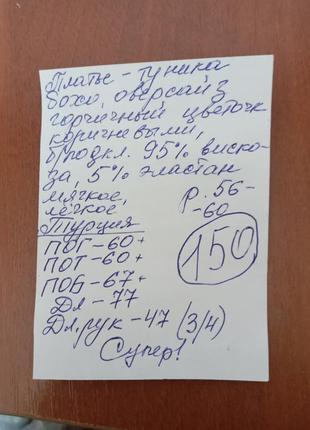 Платье - туника
бохо, оверсайз
горчичный цветочк
коричневыми,
б/подкл. 95% виско-
за, 5% эластан
мягкое,
лёгкое
р. 56-
-60
Турция
150
ПОГ-60+
ПОТ-60+
ПОБ-67+
Дл-77
Дл.рук-47 (3/4)
Супер!